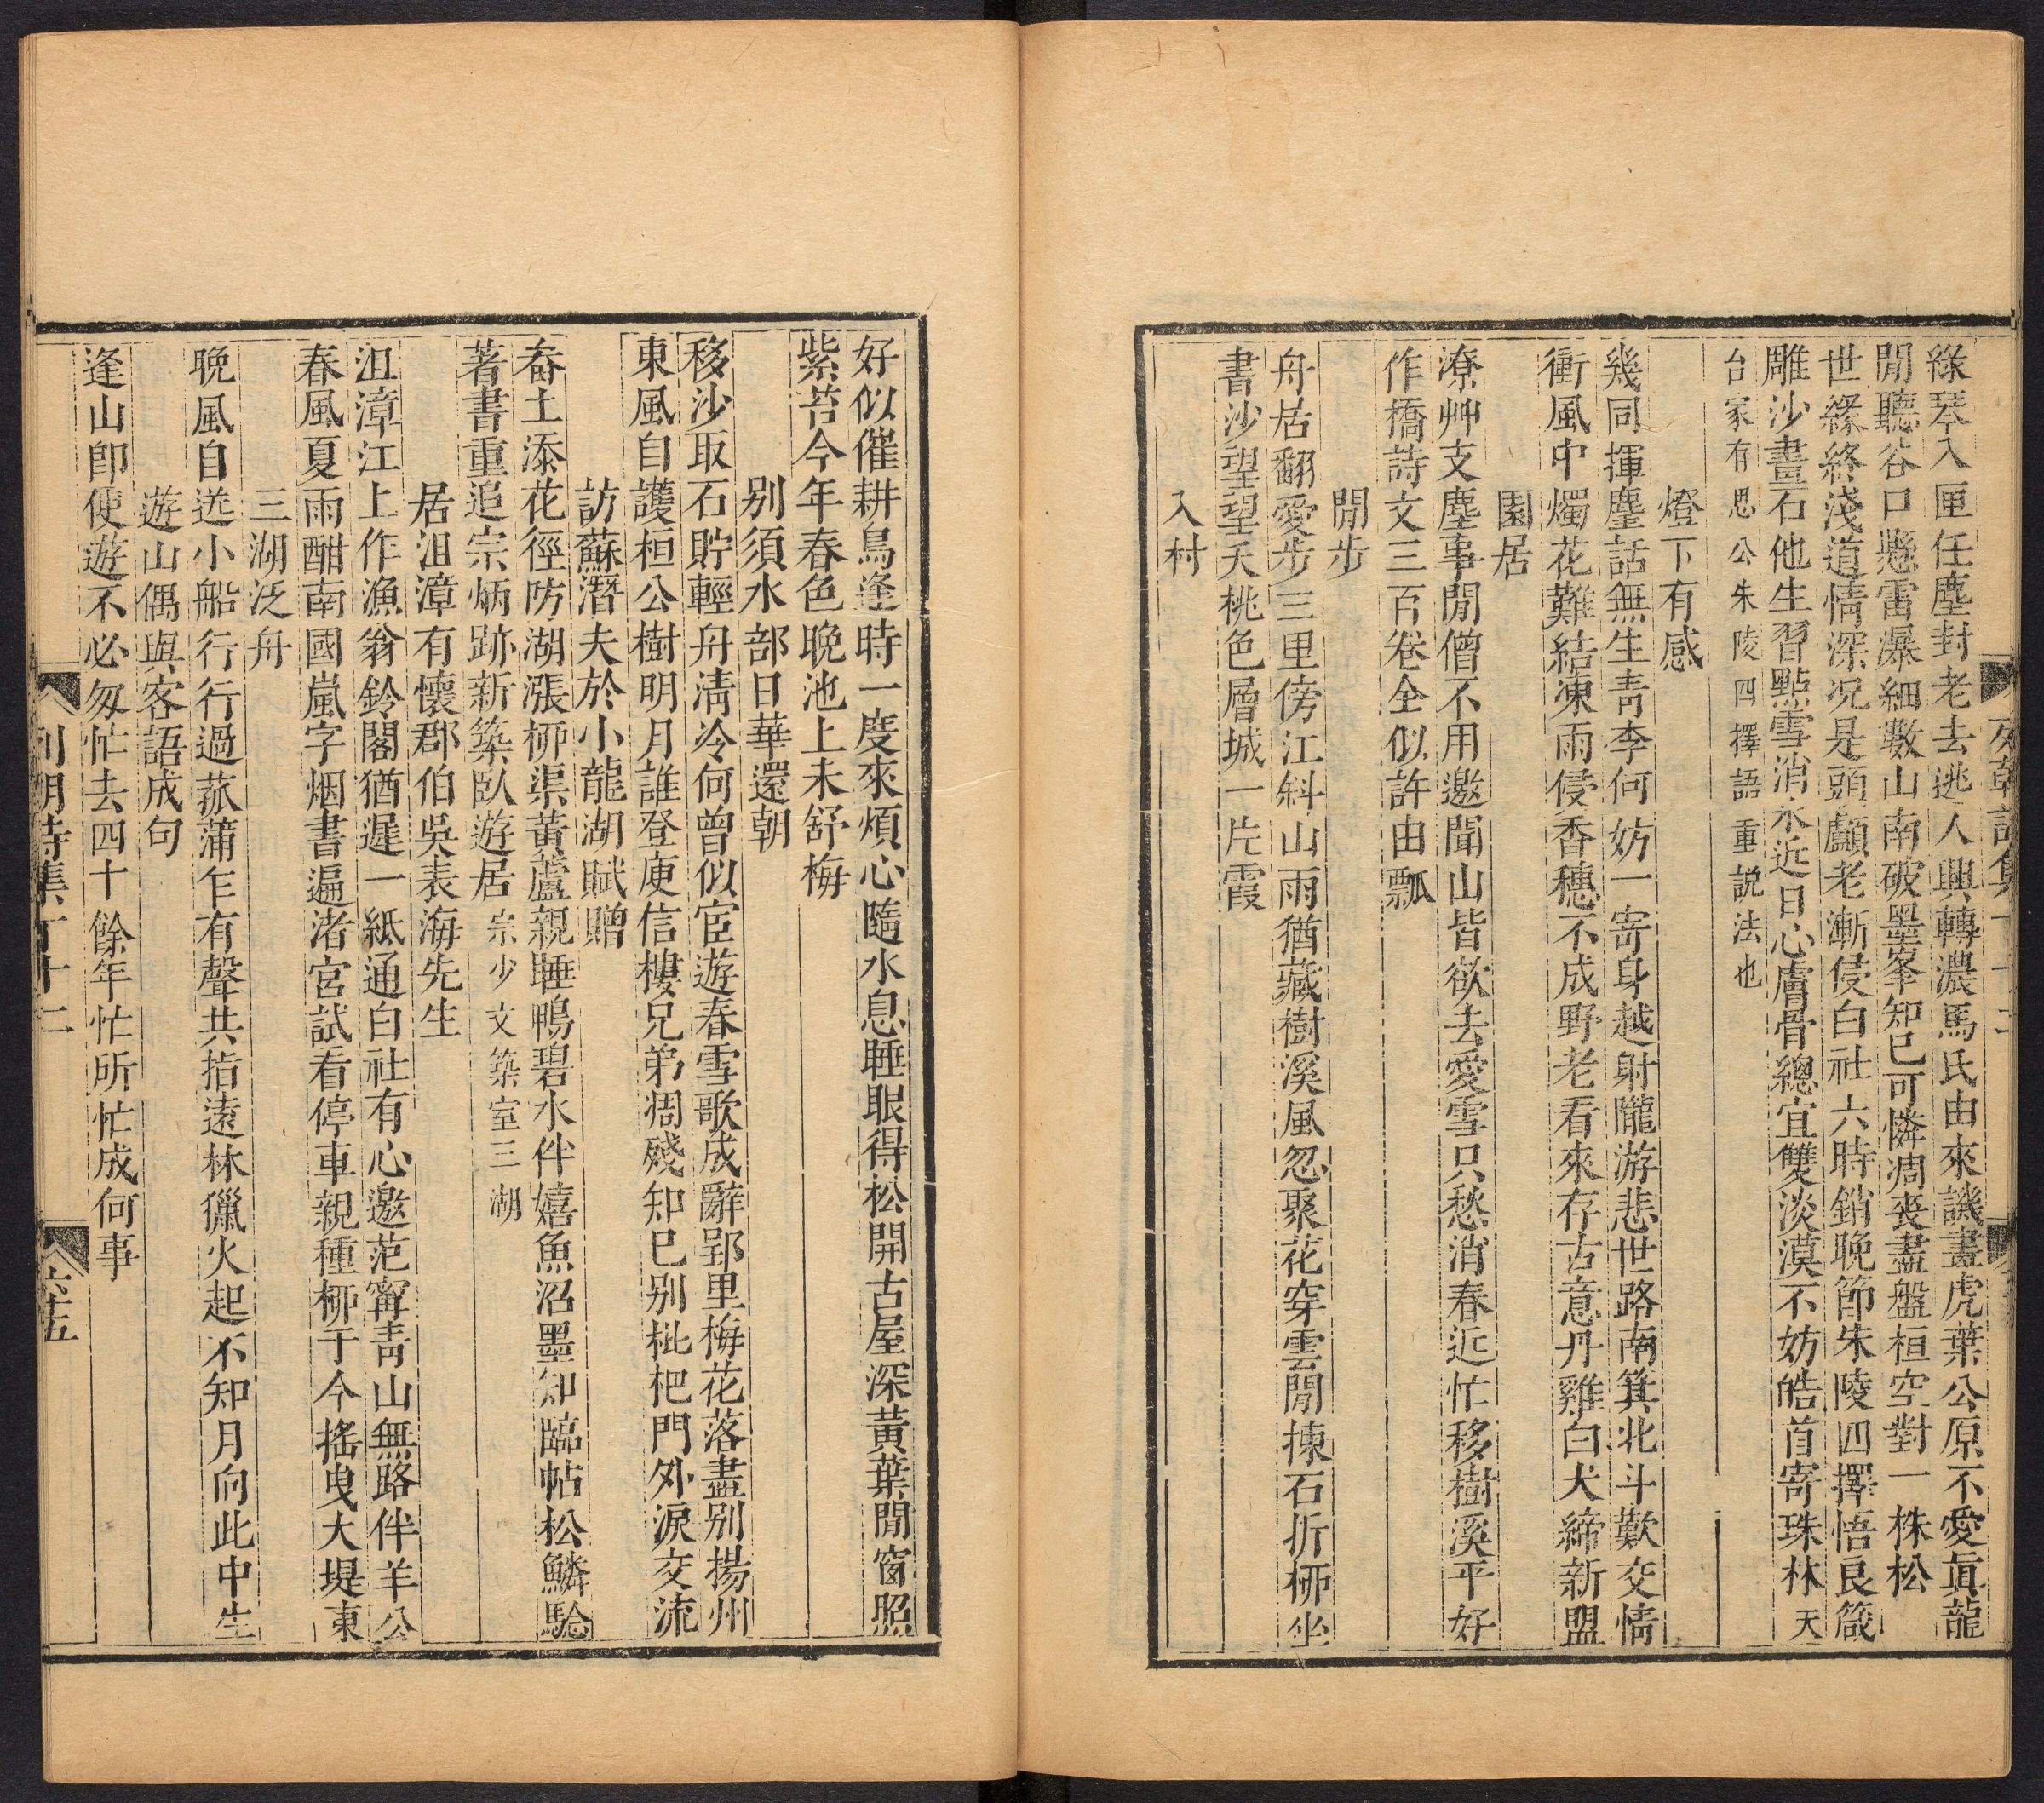 綠琴入匣任塵封老去逃人興轉濃馬氏由來譏畫虎葉公原不愛眞龍
閒聽谷口懸雷瀑細數山南破墨峯知已可憐凋喪盡盤桓空對一株松
世緣終淺道情深况是頭顱老漸侵白社六時銷晚節朱陵四擇悟良箴
雕沙畫石他生習點雪消氷近日心膚骨總宜雙淡漠不妨皓首寄珠林天
台家有思公朱陵四擇語重説法也
燈下有感
幾同揮麈話無生靑李何妨一寄身越射隴游悲世路南箕北斗歎交情
衝風中燭花難結凍雨侵香穗不成野老看來存古意丹雞白犬締新盟
園居
潦艸支塵事閒僧不用邀聞山皆欲去愛雪只愁消春近忙移樹溪平好
作橋詩文三百卷全似許由瓢
閒步
舟居翻愛步三里傍江斜山雨猶藏樹溪風忽聚花穿雲閒揀石折栁坐
書沙望望天桃色層城一片霞
入村
好似催耕鳥逢時一度來煩心隨水息睡眼得松開古屋深黃葉閒窗照
紫苔今年春色晚池上未舒梅
别須水部日華還朝
移沙取石貯輕舟淸冷何曾似宦遊春雪歌成辭郢里梅花落盡别揚州
東風自護桓公樹明月誰登庾信樓兄弟凋殘知巳别枇杷門外淚交流
訪蘇潛夫於小龍湖賦贈
畚土添花徑防湖漲栁渠黃蘆親睡鴨碧水伴嬉魚沼墨知臨帖松鱗驗
著書重追宗炳跡新築臥遊居宗少文築室三湖
居沮漳有懷郡伯吳表海先生
沮漳江上作漁翁鈴閣猶遲一紙通白社有心邀范甯靑山無路伴羊公
春風夏雨酣南國嵐字烟書遍渚宮試看停車親種栁于今搖曳大堤東
三湖泛舟
晚風自送小船行行過菰蒲乍有聲共指遠林獵火起不知月向此中生
遊山偶與客語成句
逢山卽便遊不必匆忙去四十餘年忙所忙成何事
詩集
十二
六十五